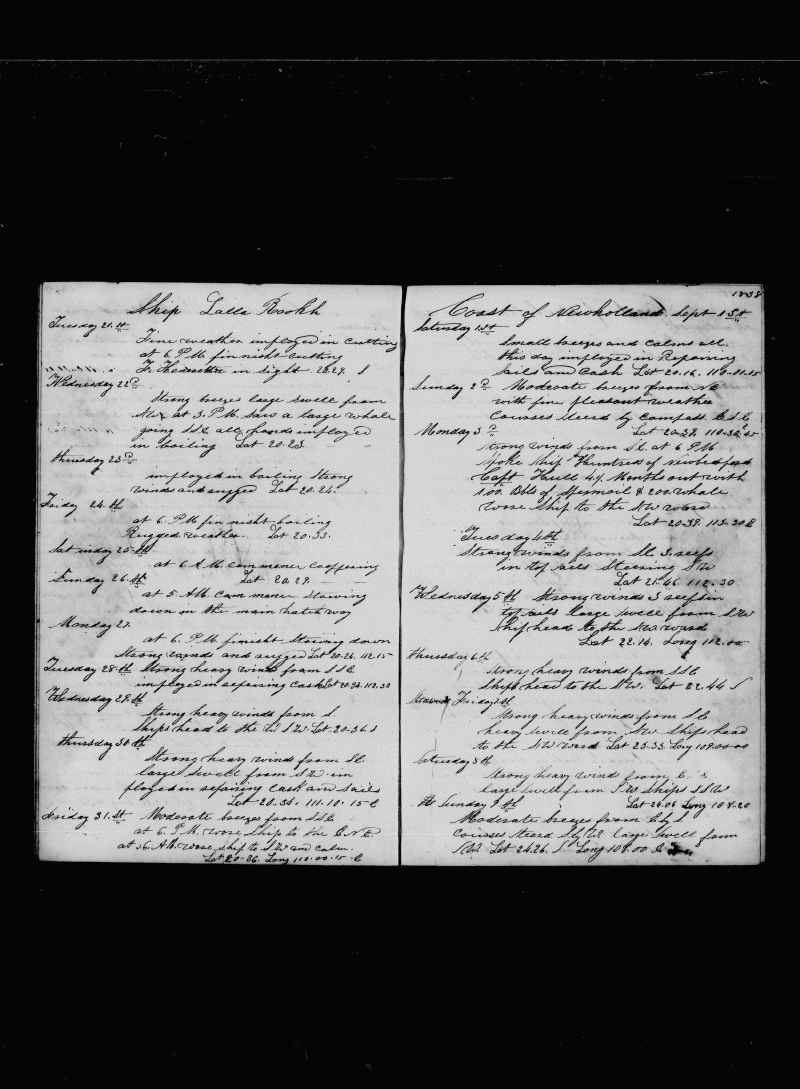 Ship Lalla Rookh
Tuesday 21. st
Fine weather imployed in cutting
at 6 P.M. finnisht cutting
in sight 20.29. S
Wednesday 22 D
Strong breezes large swell from
at 3. P.M. Saw a large whale
going S.E. all hands imployed
in boiling Lat 20.23
thursday 23 D
imployed in boiling Strong
winds and rugged Lat 20.24.
Friday 24. th
at 6. P.M finnisht boiling
Rugged weather. Lat 20.33.
Saturday 25. th
at 6 A.M. commence coopering
Sunday 26. th Lat 20.29.
at 5 A.M. Commence Stowing
down in the main hatch way
Monday 27.
at 6. P.M finisht Stowing down
Strong winds and rugged Lat 20.26. 112.15
Tuesday 28. th Strong heavy winds from S S E
imployed in repairing Cask Lat 20.34. 112.30
Wednesday 29. th
Strong heavy winds from S.
Ships head to the W S W. Lat 20.36 S
thursday 30 th
Strong heavy winds from S E
large swell from S W. im
ployed in repairing Cask and Sails
Lat 20.34. 111.10.15 E
Friday 31. st Moderate breezes from S S E
at 6. P.M. wore Ship to the E N E.
at 6 A.M. wore ship to S W and calm.
Lat 20.36. Long 110.00.15. E
1838
Coast of Newholland Sept 1 St
Saturday 1st
Small breezes and calms all
this day imployed in Repairing
Sails and Cask Lat 20.16. 110.11.15
Sunday 2 D Moderate breezes from N E
with fine pleasant weather
Courses steerd by Compass. E S E
Monday 3 D Lat 20.39. 110.32.45
Strong winds from S E. at 6 P M
Spoke Ship Huntress of Newbedford
Capt Hull 4½ Months out with
100. Bbls of Spermoil & 200. whale
wore Ship to the S W ward
Lat 20.39. 113.30 E
Tuesday 4th
Strong winds from S E 3. reefs
in top sails Steering S W
Lat 21.46 112.30
Wednesday 5 th Strong winds 3 reefs in
top sails large swell from S W
Ship head to the S W. ward
Lat 22.14. Long 112.00
thursday 6 th
Strong heavy winds from S S E
Ships head to the S W. Lat 22.44 S
Friday 7 th
Strong heavy winds from S E
heavy swell from S W. Ship head
to the S W ward Lat 23.33. Long 109.00.00
Saturday 8 th
Strong heavy wind from E S
large swell from S W Ships S S W
Sunday 9 th Lat 24.06 Long 108.20
Moderate breezes from E by S
Courses Steerd S by W. large swell from
S W. Lat 24.26. S Long 108.00 E